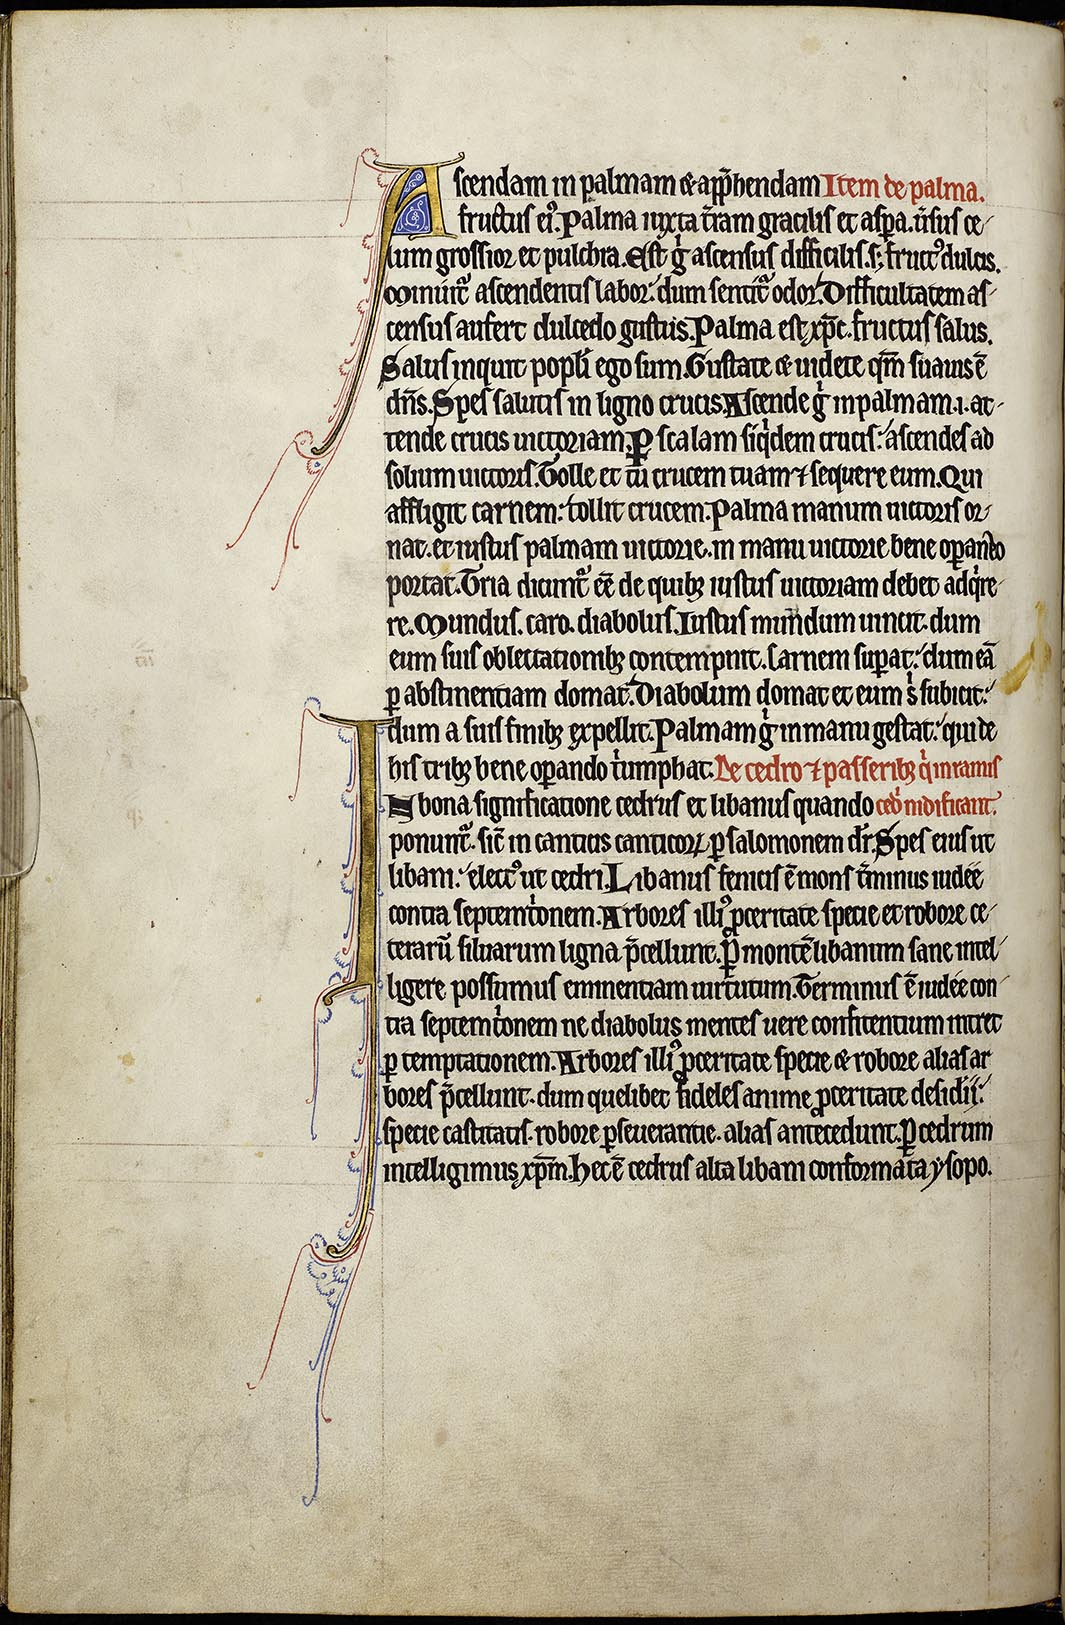 Ascendam in palmam & app̃hendam Item de palma.
fructus eꝰ. Palma iuxta t̃ram gracilis et asꝑa. ũsus ce-
lum grossior et pulchra. Est gͥ ascensus difficilis. sꝫ fructꝰ dulcis.
Minuit᷑ ascendentis labor: dum sentit᷑ odor. Difficultatem as-
census aufert dulcedo gustus. Palma est xp̃c. fructus salus.
Salus inquit popłi ego sum. Gustate & uidete qm̃ suauis ẽ
dñs. Spes salutis in ligno crucis. Ascende gͥ in palmam .i. at-
tende crucis uictoriam. Ꝑ scalam siqͥdem crucis: ascendes ad
solium uictoris. Tolle et tu crucem tuam ⁊ sequere eum. Qui
affligit carnem: tollit crucem. Palma manum uictoris or-
nat. et iustus palmam uictorie. in manu uictorie bene oꝑando
portat. Tria dicunt᷑ eẽ de quibꝫ iustus uictoriam debet adqͥre-
re. Mundus. caro. diabolus. Iustus mundum uincit. dum
eum suis oblectationibꝫ contempnit. Carnem suꝑat: dum eã
ꝑ abstinentiam domat. Diabolum domat et eum sͥ subicit:
dum a suis finibꝫ expellit. Palmam gͥ in manu gestat: qui de
his tribꝫ bene oꝑando tͥumphat. De cedro ⁊ passeribꝫ qͥ in ramis
IN bona significatione cedrus et libanus quando cedͥ nidificant.
ponunt᷑. sic̃ in canticis canticoꝝ ꝑ salomonem dr̃. Spes eius ut
libani: electꝰ ut cedri. Libanus fenicis ẽ mons t̃minus iudee
contra septemtͥonem. Arbores illiꝰ ꝓceritate specie et robore ce-
terarũ siluarum ligna p̃cellunt. Ꝑ montẽ libanum sane intel-
ligere possumus eminentiam uirtutum. Terminus ẽ iudee con-
tra septemtͥonem ne diabolus mentes uere confitentium intret
ꝑ temptationem. Arbores illiꝰ ꝓceritate specie & robore alias ar
bores p̃cellunt. dum quelibet fideles anime ꝓceritate desidͥii:
specie castitatis. robore ꝑseuerantie. alias antecedunt. Ꝑ cedrum
intelligimus xp̃m. Hec ẽ cedrus alta libani conformata ysopo.